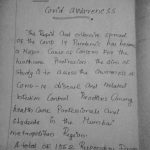 Covid awareness
The Rapid and extensive spread
of the Covid 19 Pandemic has become
a Major Cause of Concern for the
healthcare Profession. The aim of
Study is to assess the awareness of
Covid-19 disease and related
infection Control Practices among
health Care Professionals and
Students in the Mumbai
metropolitan Region.
A total of 1562 Responders from